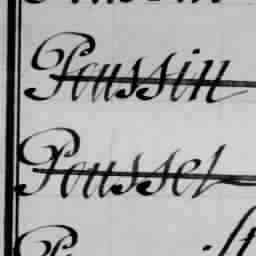 Poussin
Pousset